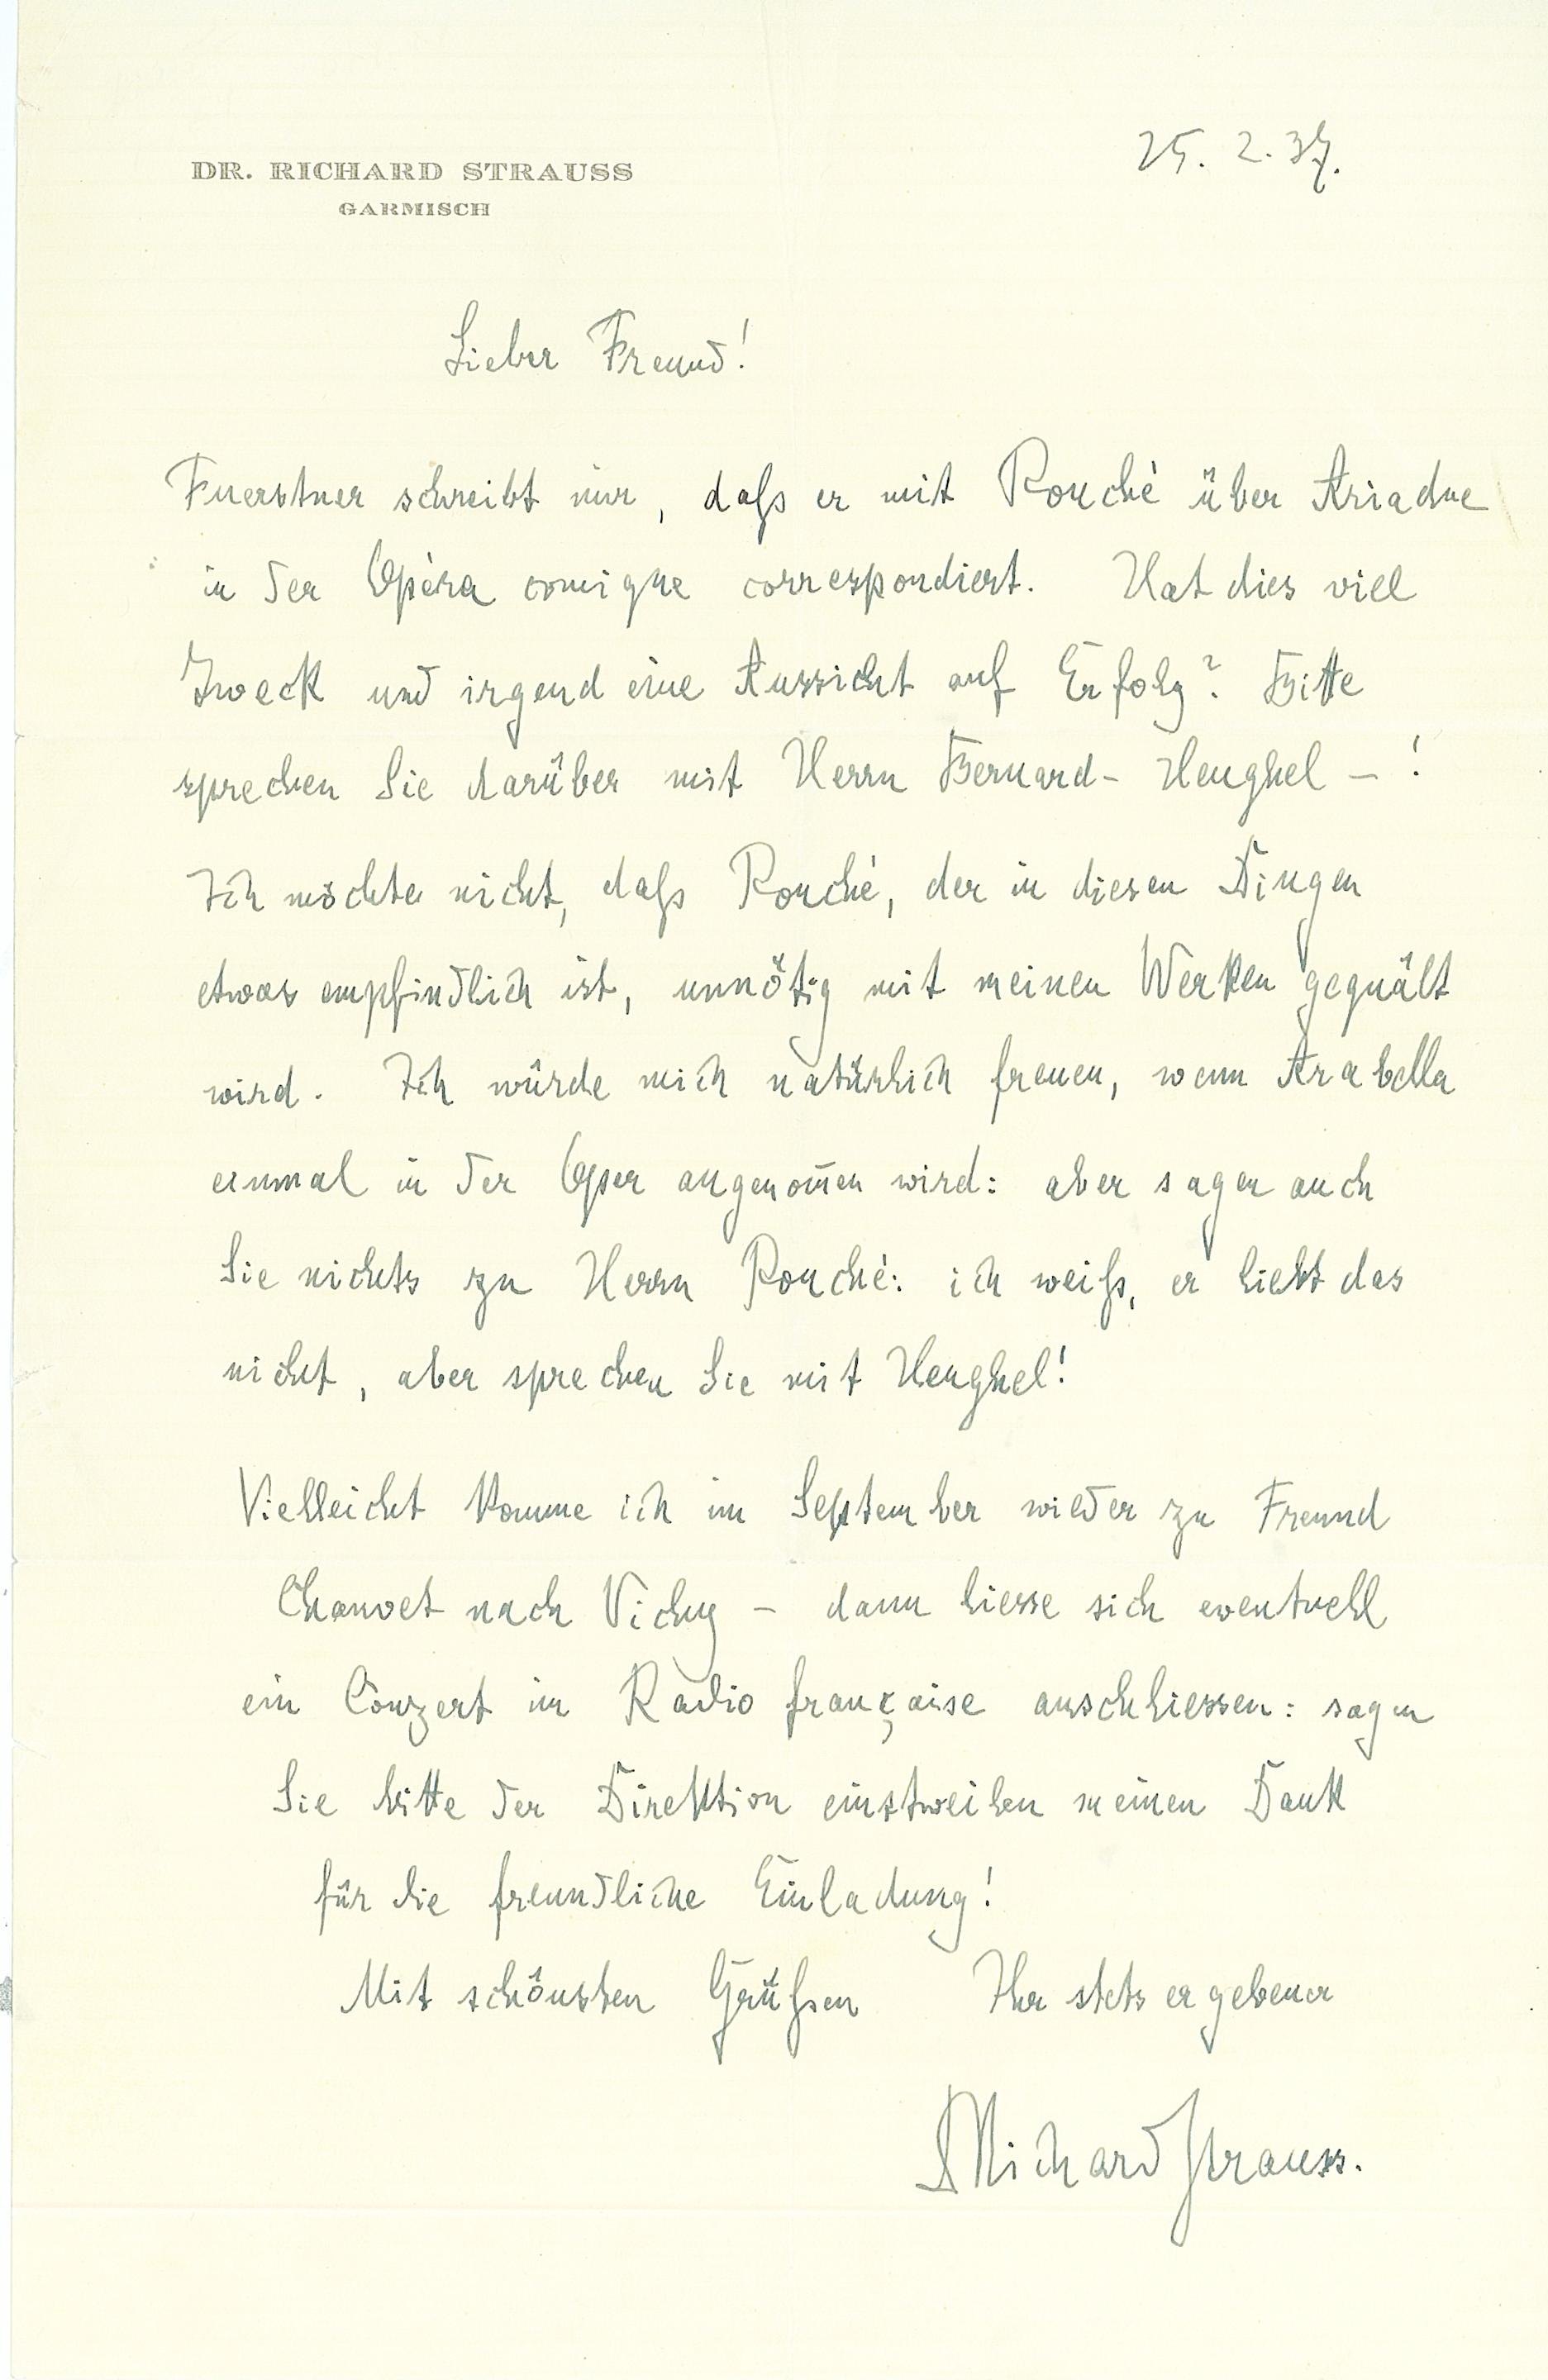 DR. RICHARD STRAUSS
GARMISCH
25. 2. 37.
Lieber Freund!
Fuerstner schreibt mir, daß er mit Rouché über Ariadne
in der Opéra comique correspondiert. Hat dies viel
Zweck und irgend eine Aussicht auf Erfolg? Bitte
sprechen Sie darüber mit Herrn Bernard- Heughel – !
Ich möchte nicht, daß Rouché, der in diesen Dingen
etwas empfindlich ist, unnötig mit meinen Werken gequält
wird. Ich würde mich natürlich freuen, wenn Arabella
einmal in der Oper angenom̅en wird: aber sagen auch
Sie nichts zu Herrn Rouché: ich weiß, er liebt das
nicht, aber sprechen Sie mit Heughel!
Vielleicht komme ich im September wieder zu Freund
Chauvet nach Vichy – dann liesse sich eventuell
ein Conzert im Radio française anschliessen: sagen
Sie bitte der Direktion einstweilen meinen Dank
für die freundliche Einladung!
Mit schönsten Grüßen Ihr stets ergebener
DrRichard Strauss.